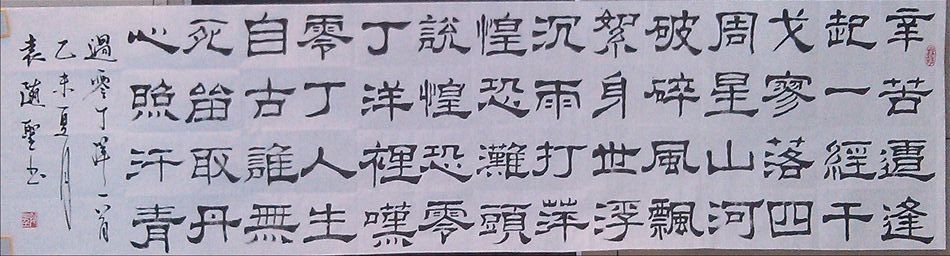 辛苦遭逢
起一經干
戈寥落四
周星山河
破碎風飄
絮身世浮
沉雨打萍
惶恐灘頭
說惶恐零
丁洋裡嘆
零丁人生
自古誰無
死留取丹
心照汗青
過零丁洋一首
乙未夏月
袁聖书